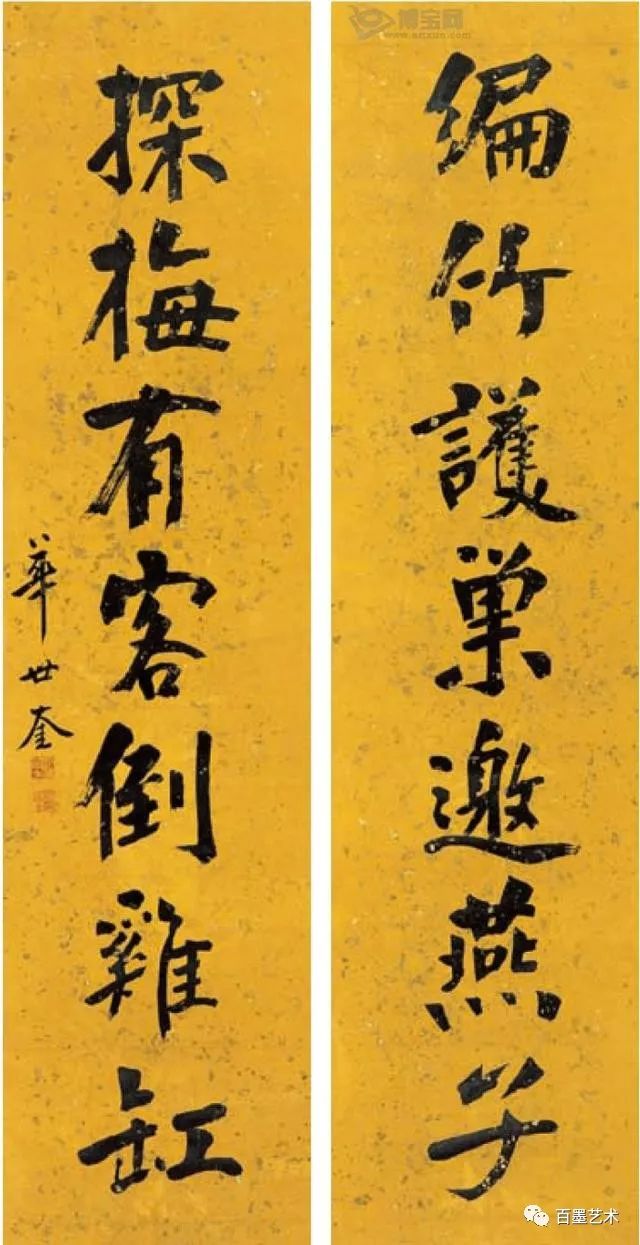 编竹護巢邀燕子
探梅有客倒雞缸
華世奎
博宝网
www.artxun.com
百墨艺术